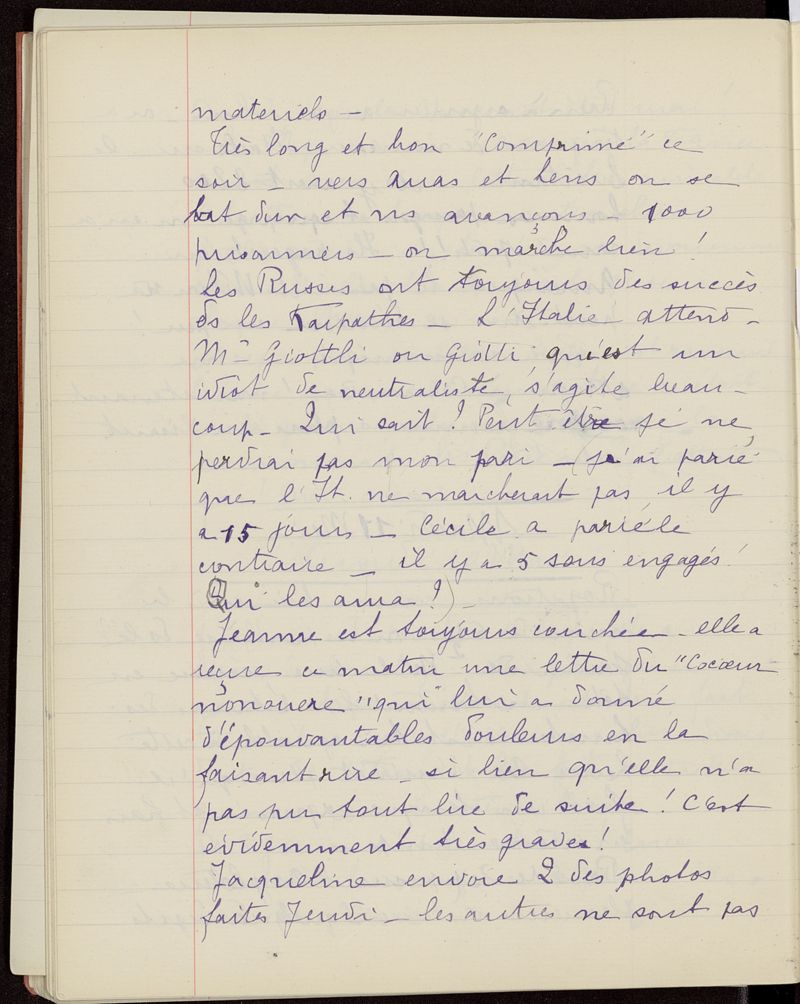 materiels —
Très long et bon "Comprimé" ce
soir — vers Arras et Lens on se
bat dur et ns avançons — 1000
prisonniers — on marche bien !
Les Russes ont toujours des succès
ds les Karpathes — L'Italie attend —
Mr Giottli ou Giotti, qui est un
idiot de neutraliste, s'agite beau-
coup — Qui sait ? Peut être je ne
perdrai pas mon pari — (j'ai parié
que l'It. ne marcherait pas, il y
a 15 jours — Cécile a parié le
contraire — il y a 5 sous engagés !
Qui les aura ?) —
Jeanne est toujours couchée — elle a
reçu ce matin une lettre du "Cocœur
" qui lui a donné
d'épouvantables douleurs en la
faisant rire — si bien qu'elle n'a
pas pu tout lire de suite ! C'est
évidemment très grave !
Jacqueline envoie 2 des photos
faites Jeudi — les autres ne sont pas